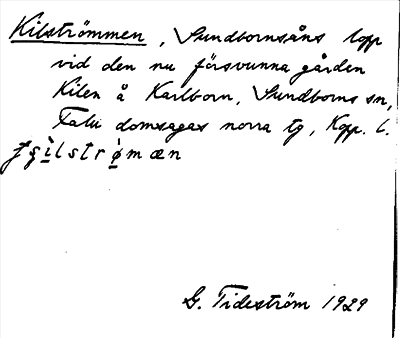 Kilströmmen, Sundbornsåns lopp
vid den nu försvunna gården
Kilen å Karlborn, Sundborns sn,
Falu domsagas norra tg, Kopp. l.
G. Tideström 1929